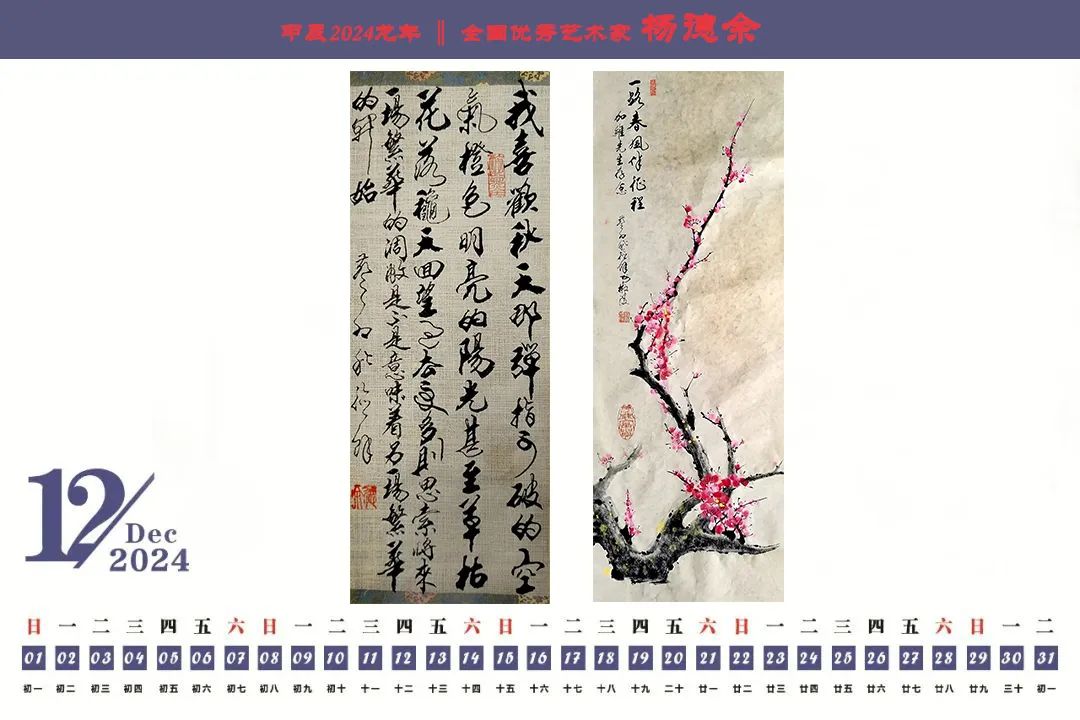 甲辰2024龙年 ‖ 全国优秀艺术家 杨德余
我喜歡秋天那彈指可破的空
氣橙色明亮的陽光甚至草枯
花落龝天回望 多則思索將來
一場繁華的凋敝是不是意味着另一場繁華
的開始
一路春風伴征程
先生存念
12/
Dec
2024
日 一 二 三 四 五 六 日 一 二 三 四 五 六 日 一 二 三 四 五 六 日 一 二 三 四 五 六 日 一 二
01 02 03 04 05 06 07 08 09 10 11 12 13 14 15 16 17 18 19 20 21 22 23 24 25 26 27 28 29 30 31
初一 初二 初三 初四 初五 初六 初七 初八 初九 初十 十一 十二 十三 十四 十五 十六 十七 十八 十九 二十 廿一 廿二 廿三 廿四 廿五 廿六 廿七 廿八 廿九 三十 初一